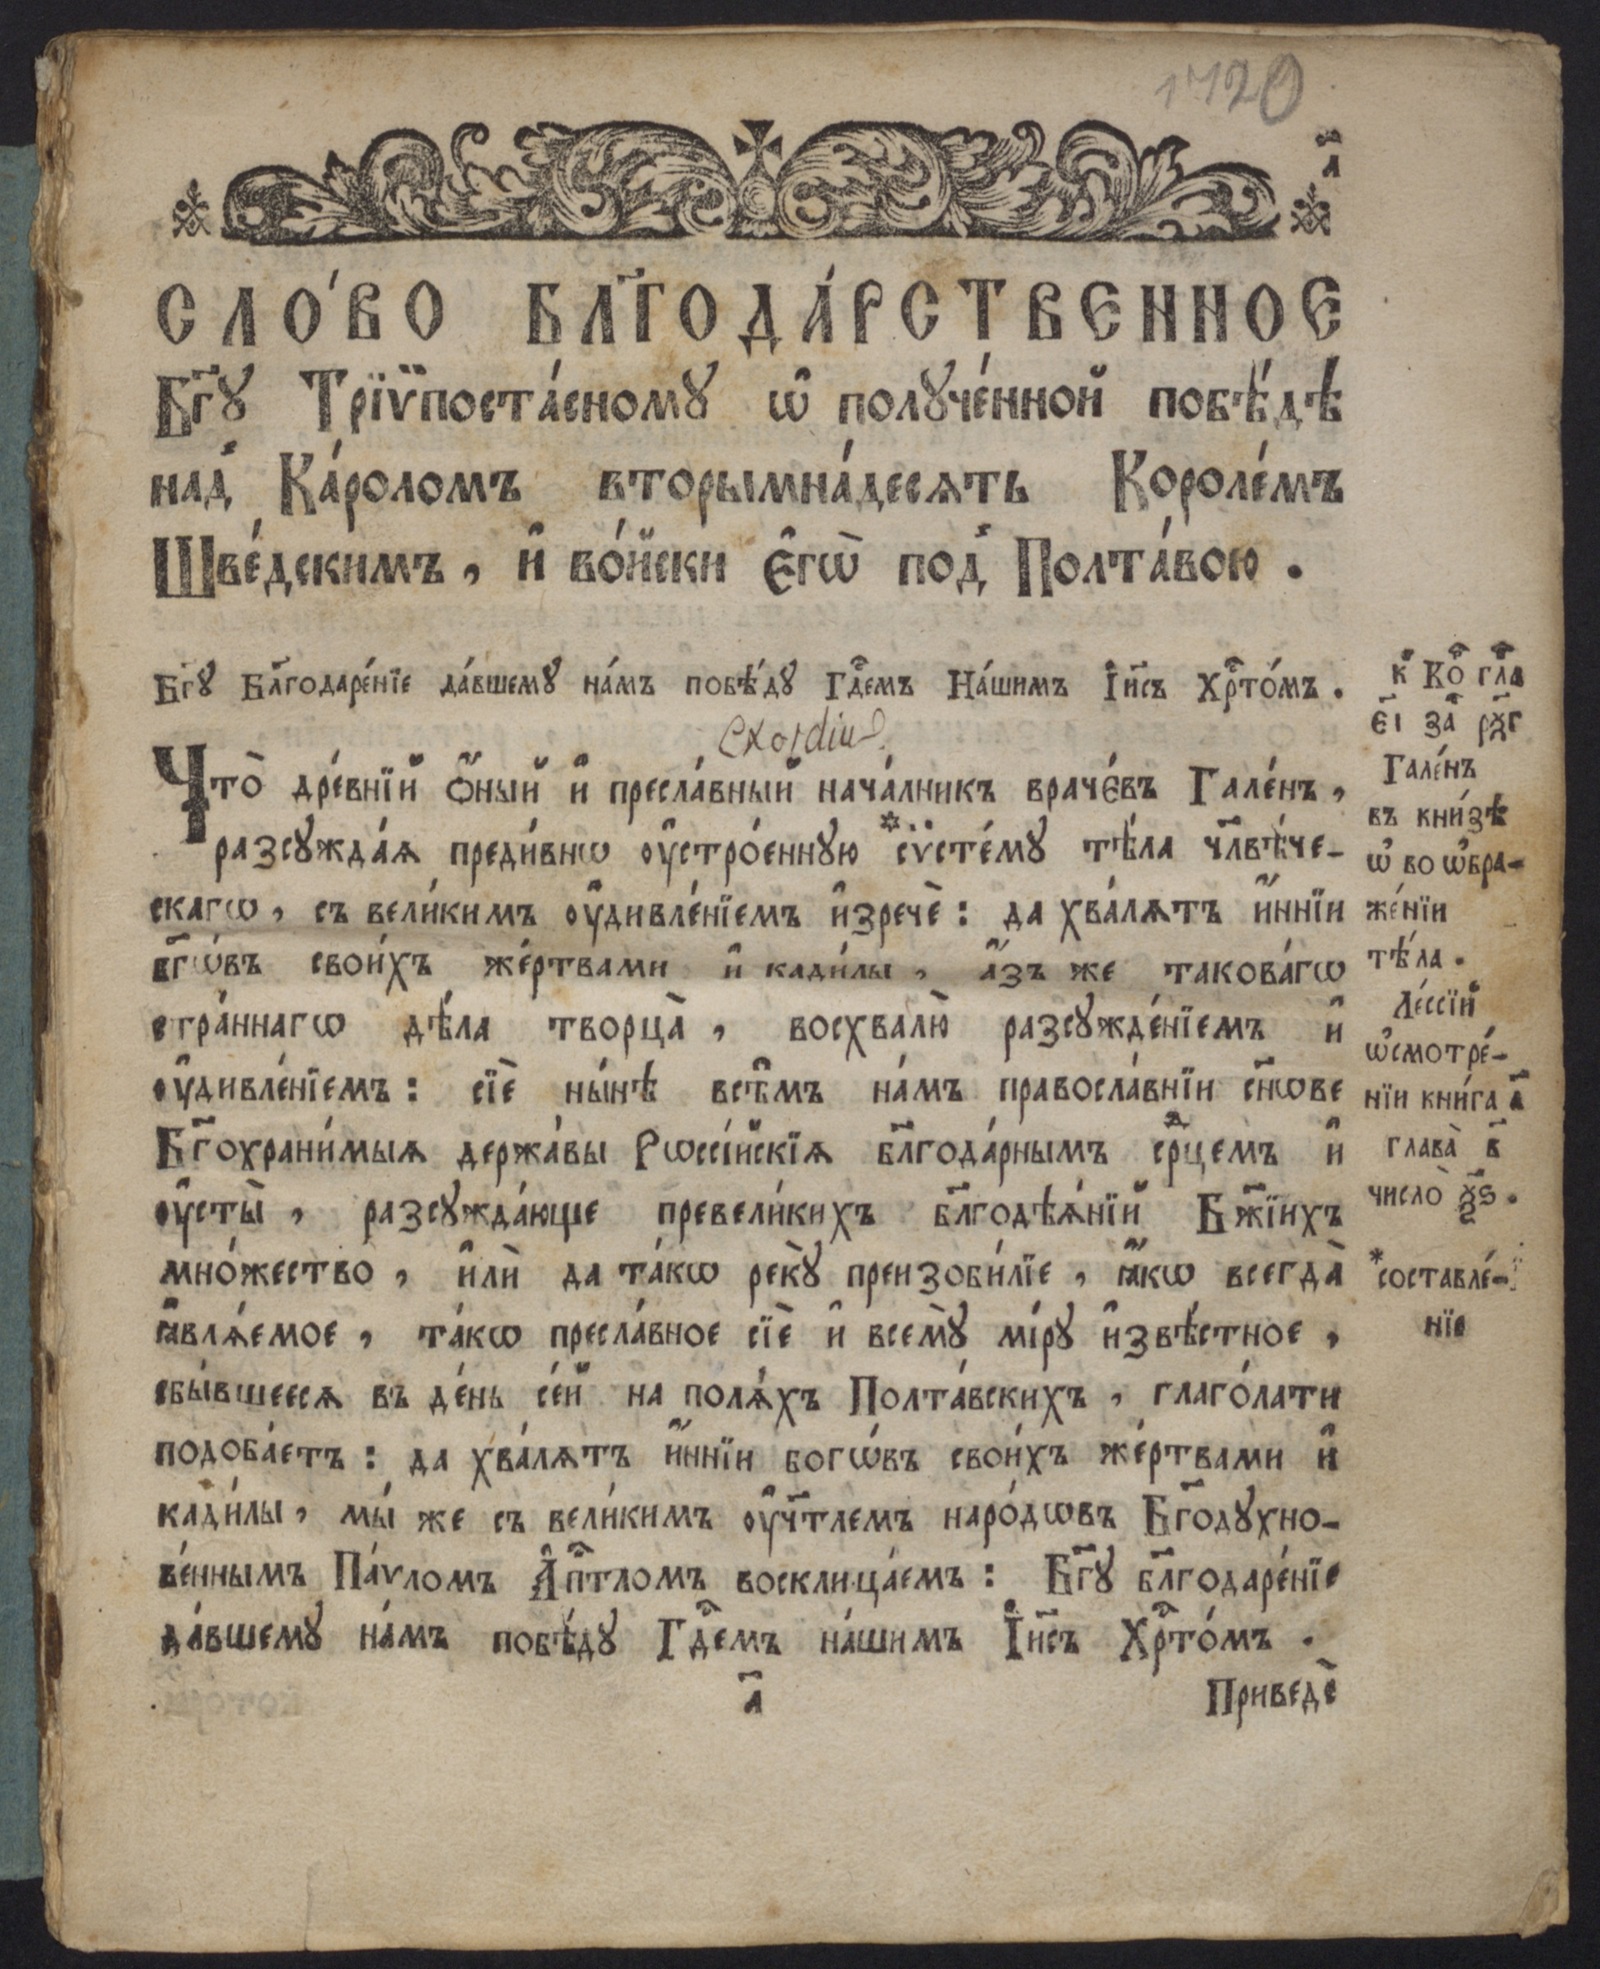 1720
а҃
СЛО́ВО БЛ҃ГОДА́РСТВЕННОЕ
Бг҃ꙋ Трїѵпоста́сномꙋ ѡ҆ полꙋче́нной побѣ́дѣ
над̾ Ка́роломъ вторымна́десѧть Короле́мъ
Шве́дскимъ, и҆ во́йски є҆гѡ̀ под̾ Полта́вою.
Бг҃ꙋ Бл҃годаре́нїе да́вшемꙋ на́мъ побѣ́дꙋ Гдⷭ҇емъ На́шимъ І҆и҃съ Хрⷭ҇то́мъ.
к̾ Коⷬ҇ глаⷡ҇
є҃і за҃ рꙋ҃г
Exordiu
Что̀ дре́внїй ѻ҆́ный и҆ пресла́вный нача́лникъ враче́въ Гале́нъ,
разсꙋжда́ѧ преди́внѡ ᲂу҆стро́еннꙋю *сѷсте́мꙋ тѣ́ла чл҃вѣ́че-
скагѡ, съ вели́кимъ ᲂу҆дивле́нїемъ и҆зречѐ: да хва́лѧтъ и҆́ннїи
бг҃ѡ́въ свои́хъ же́ртвами и҆ кади́лы, а҆́зъ же такова́гѡ
стра́ннагѡ дѣ́ла творца̀, восхвалю̀ разсꙋжде́нїемъ и҆
ᲂу҆дивле́нїемъ: сїѐ ны́нѣ всѣ̑мъ на́мъ правосла́внїи сн҃ове
Бг҃охрани́мыѧ держа́вы Рѡссі́йскїѧ бл҃года́рнымъ срⷣцемъ и҆
ᲂу҆сты̀, разсꙋжда́юще превели́кихъ бл҃годѣѧ́нїй Бж҃їихъ
мно́жество, и҆лѝ да та́кѡ рекꙋ̀ преизоби́лїе, ꙗ҆́кѡ всегда̀
ꙗ҆влѧ́емое, та́кѡ пресла́вное сїѐ и҆ всемꙋ̀ мі́рꙋ и҆звѣ́стное,
сбы́вшеесѧ въ де́нь се́й на полѧ́хъ Полта́вскихъ, глаго́лати
подоба́етъ: да хва́лѧтъ и҆́ннїи богѡ́въ свои́хъ же́ртвами и҆
кади́лы, мы́ же съ вели́кимъ ᲂу҆чт҃лемъ наро́дѡвъ Бг҃одꙋхно-
ве́ннымъ Па́ѵломъ А҆пⷭ҇тломъ восклица́емъ: Бг҃ꙋ бл҃годаре́нїе
да́вшемꙋ на́мъ побѣ́дꙋ Гдⷭ҇емъ на́шимъ І҆и҃съ Хрⷭ҇то́мъ.
а҃
Приведѐ
Гале́нъ
въ кни́зѣ
ѡ҆ во ѡ҆бра-
же́нїи
тѣ́ла.
Ле́ссїй
ѡ҆смотре́-
нїи кни́га а҃
глава̀ в҃
число̀ ꙋ҃ѕ.
*составле́-
нїе